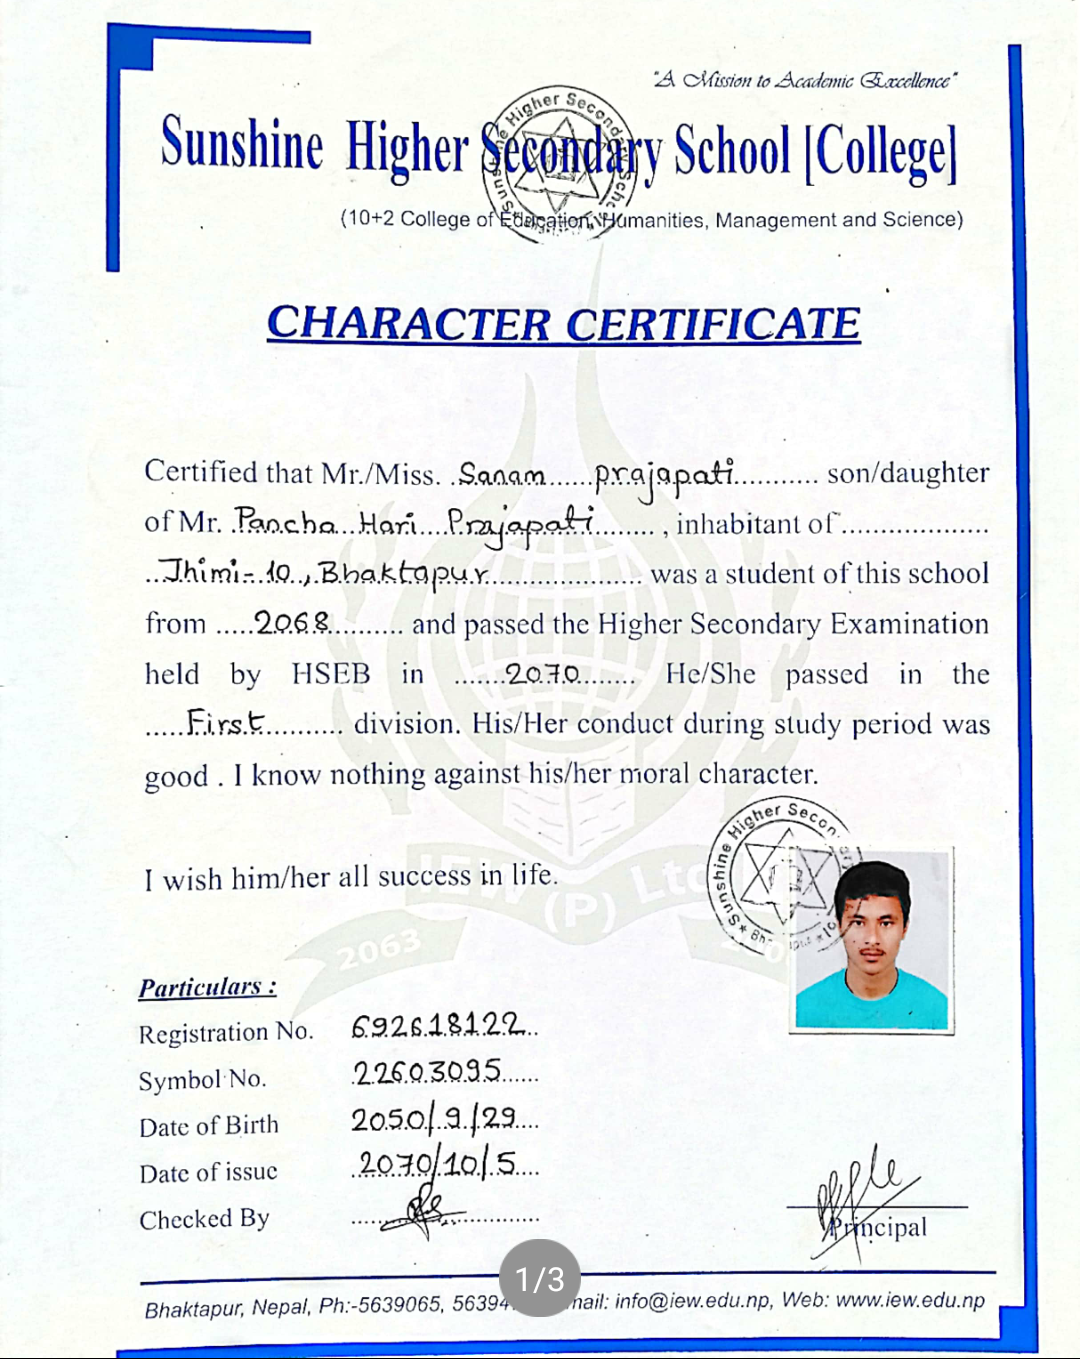 "A Mission to Academic Excellence"
Sunshine Higher Secondary School [College]
(10+2 College of Education, Humanities, Management and Science)
CHARACTER CERTIFICATE
Certified that Mr./Miss. Sanam prajapati son/daughter
of Mr. Pancha Hari Prajapati , inhabitant of
Thimi-10, Bhaktapur was a student of this school
from 2068 and passed the Higher Secondary Examination
held by HSEB in 2070 He/She passed in the
First division. His/Her conduct during study period was
good . I know nothing against his/her moral character.
Sunshine Higher Secon
I wish him/her all success in life.
IEW (P) Ltd
2063
Particulars :
Registration No. 692618122
Symbol No. 22603095
Date of Birth 2050/9/29
Date of issue 2070/10/5
Checked By
Principal
1/3
Bhaktapur, Nepal, Ph:-5639065, 56394 mail: info@iew.edu.np, Web: www.iew.edu.np